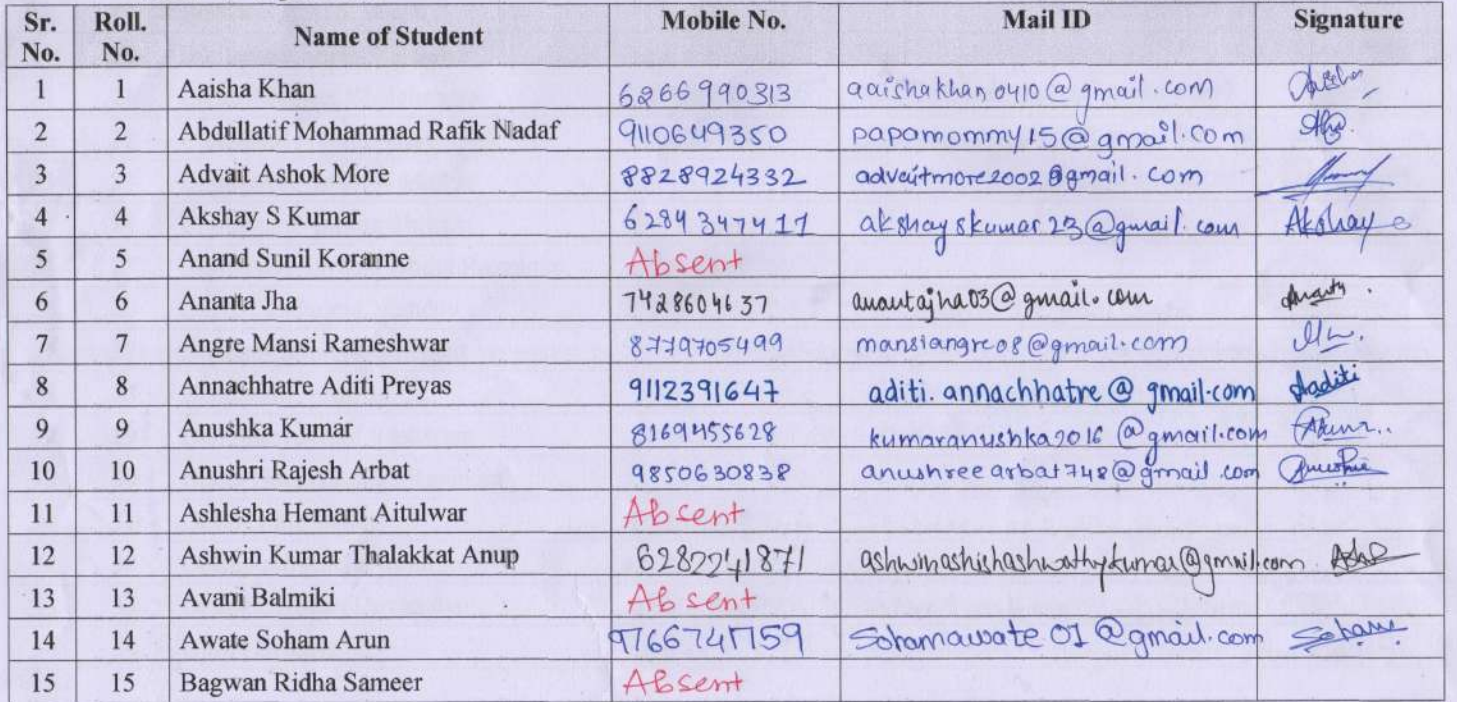 Sr. No. Roll. No. Name of Student Mobile No. Mail ID Signature
1 1 Aaisha Khan 6266990313 aaishakhan0410@gmail.com
2 2 Abdullatif Mohammad Rafik Nadaf 9110649350 papamommy15@gmail.com
3 3 Advait Ashok More 8828924332 advaitmore2002@gmail.com
4 4 Akshay S Kumar 6284347411 akshayskumar23@gmail.com Akshay
5 5 Anand Sunil Koranne Absent
6 6 Ananta Jha 7428604637 anantajha03@gmail.com
7 7 Angre Mansi Rameshwar 8779705499 mansiangre08@gmail.com
8 8 Annachhatre Aditi Preyas 9112391647 aditi.annachhatre@gmail.com Aaditi
9 9 Anushka Kumar 8169455628 kumaranushka2016@gmail.com
10 10 Anushri Rajesh Arbat 9850630838 anushreearbat748@gmail.com
11 11 Ashlesha Hemant Aitulwar Absent
12 12 Ashwin Kumar Thalakkat Anup 6282241871 ashwinashishashwathykumar@gmail.com
13 13 Avani Balmiki Absent
14 14 Awate Soham Arun 9766741759 Sohamawate01@gmail.com Soham
15 15 Bagwan Ridha Sameer Absent